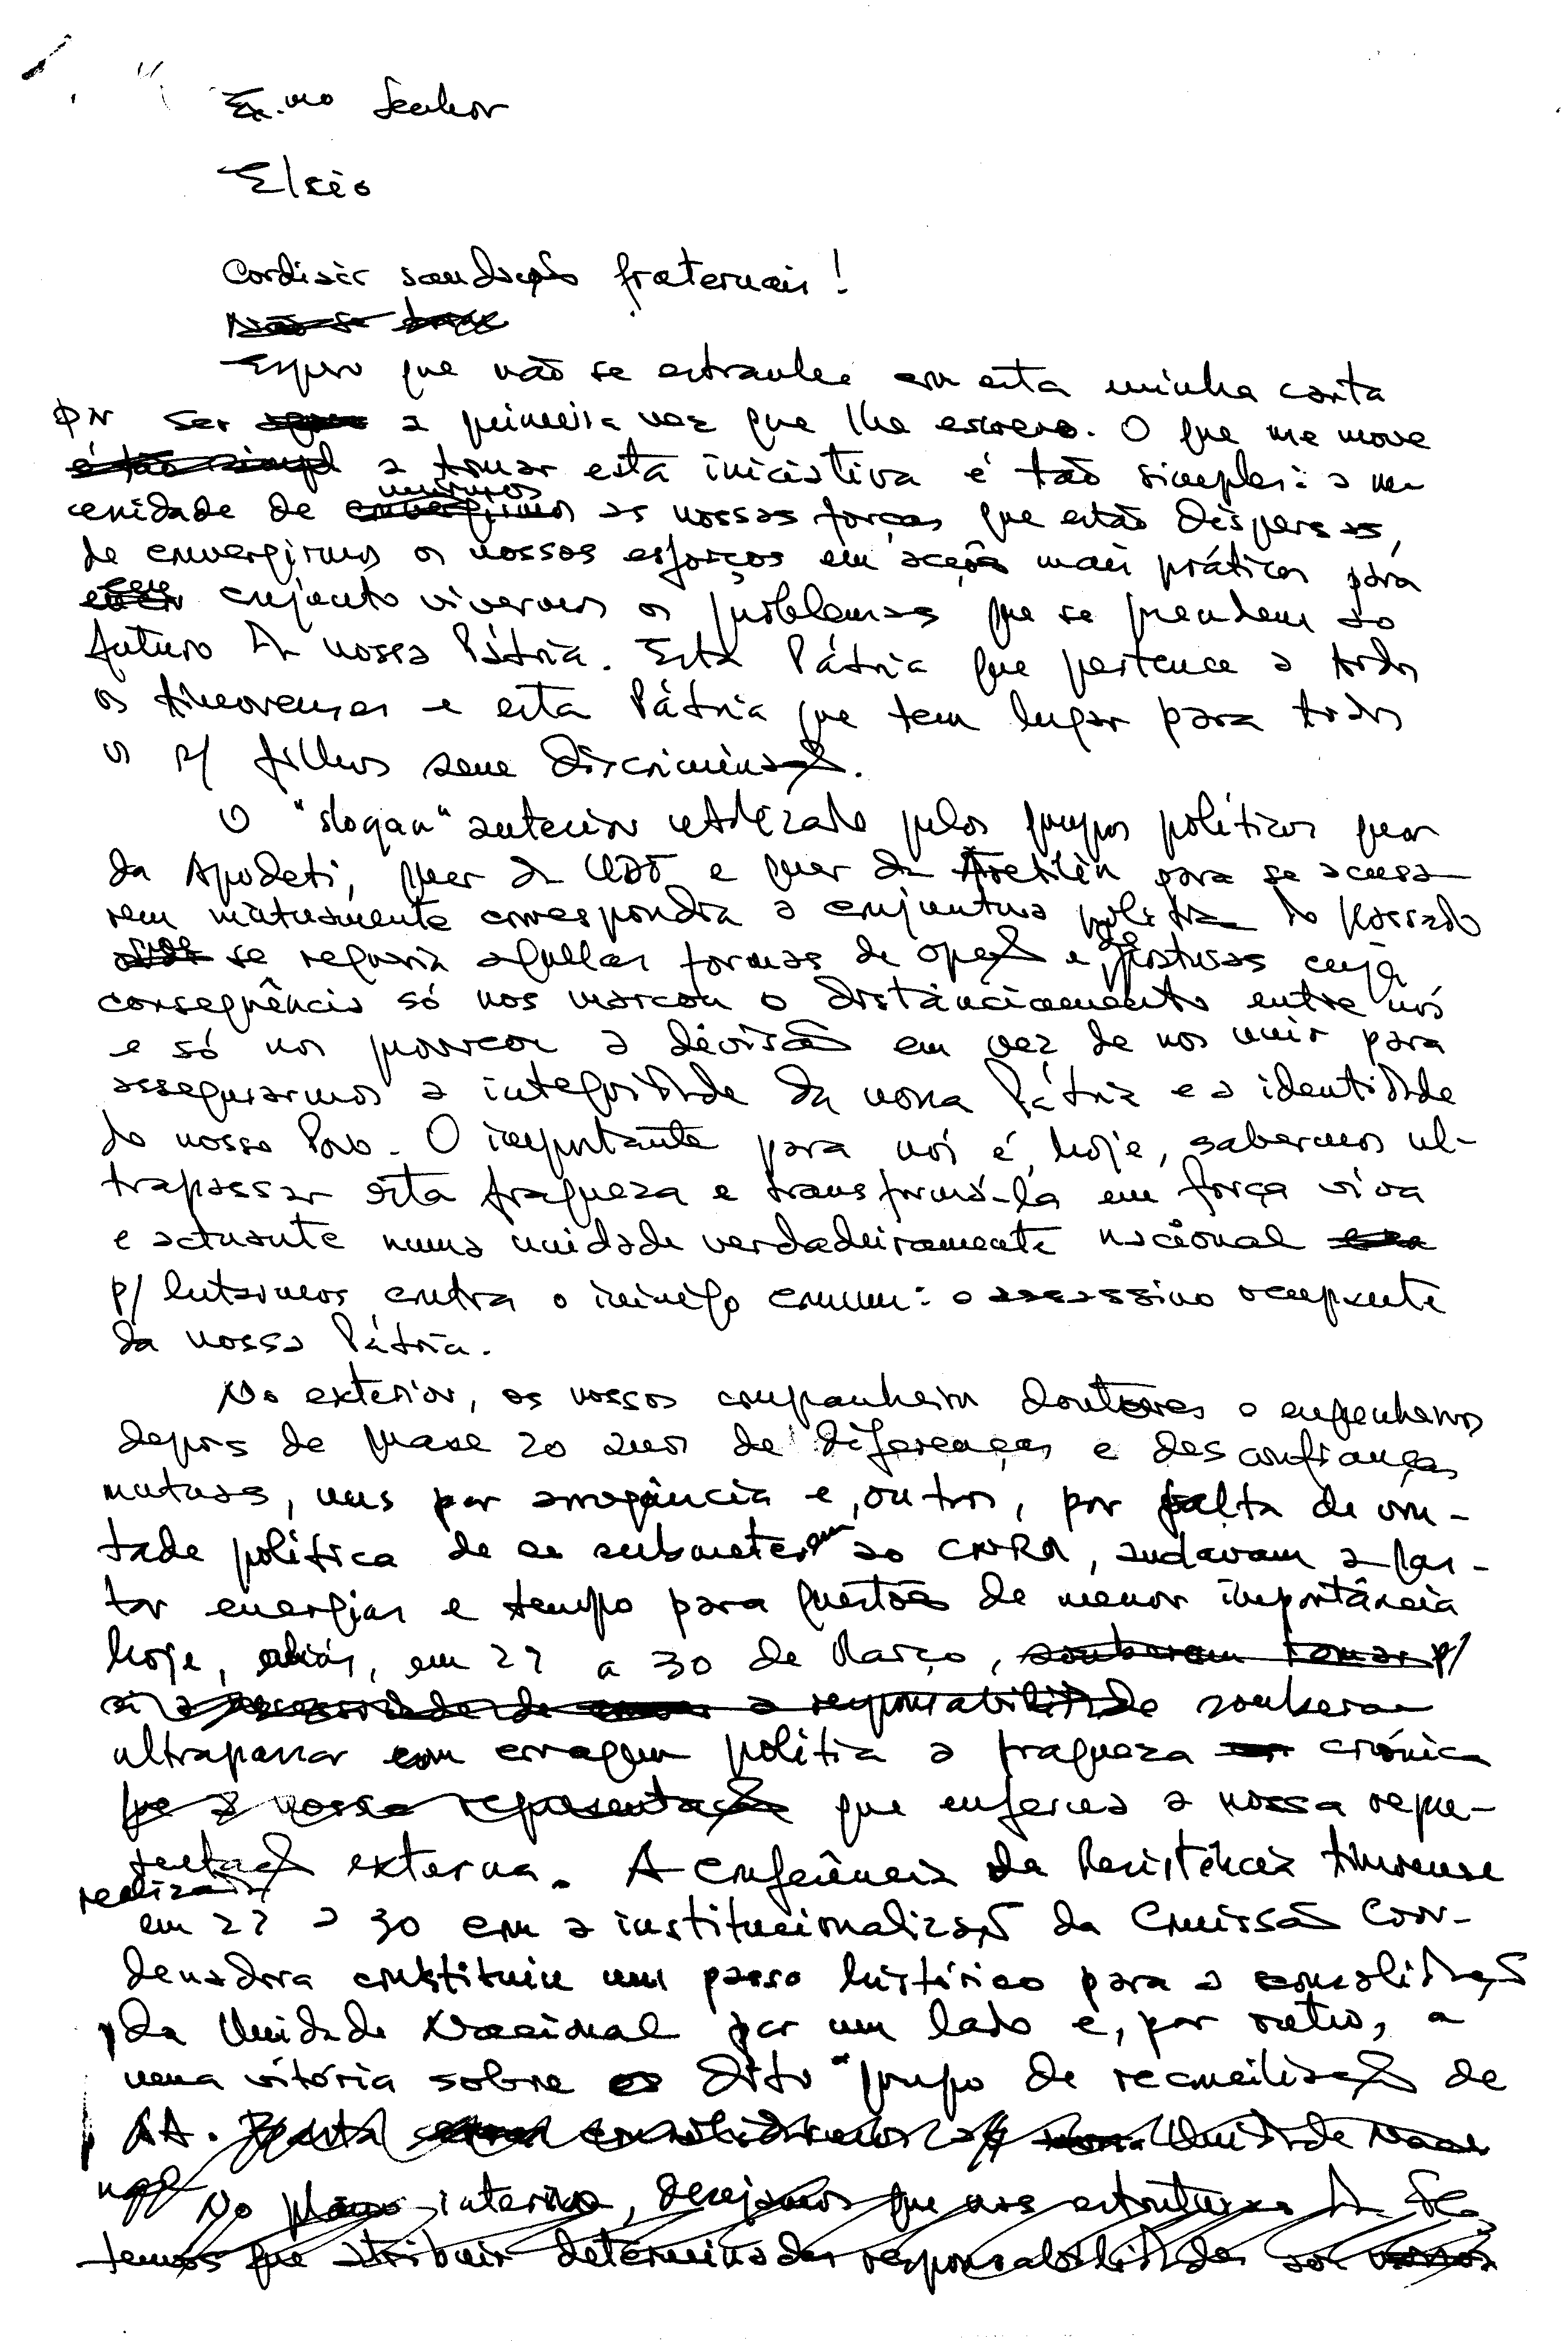 Ex.mo Senhor
Elséo
Cordiais saudações fraternais!
Não se
Espero que não se estranhe em esta minha carta
por ser a primeira vez que lhe escrevo. O que me move
é tão simpl a tomar esta iniciativa é tão simples: a ne-
cessidade de convergirmos unirmos as nossas forças que estão dispersas,
de convergirmos os nossos esforços em acções mais práticas para
em conjunto vivermos os problemas que se prendem ao
futuro da nossa Pátria. Esta Pátria que pertence a todos
os timorenses e esta Pátria que tem lugar para todos
os s/ filhos sem discriminação.
O "slogan" anterior utilizado pelos grupos políticos quer
da Apodeti, quer da UDT e quer da Fretilin para se acusa-
rem mutuamente correspondia a conjuntura política do passado
onde se requeria aquelas formas de opção e de posturas cuja
consequência só nos marcou o distanciamento entre nós
e só nos provocou a divisão em vez de nos unir para
assegurarmos a integridade da nossa Pátria e a identidade
do nosso Povo. O importante para nós é, hoje, sabermos ul-
trapassar esta fraqueza e transformá-la em força viva
e actuante numa unidade verdadeiramente nacional
p/ lutarmos contra o inimigo comum: o assassino ocupante
da nossa Pátria.
No exterior, os nossos companheiros doutores e engenheiros
depois de quase 20 anos de diferenças e desconfianças
mutuas, uns por arrogância e, outros, por falta de von-
tade política de se submeterem ao CNRM, andavam a gas-
tar energias e tempo para questões de menor importância
hoje, aliás, em 27 a 30 de Março, souberam tomar p/
si a necessidade de a responsabilidade souberam
ultrapassar com coragem política a fraqueza crónica
que a nossa representação que enferma a nossa repre-
sentação externa. A Conferência da Resistência timorense
realizada
em 27 a 30 com a institucionalização da Comissão Coor-
denadora constituiu um passo histórico para a consolidação
da Unidade Nacional por um lado e, por outro, a
uma vitória sobre o dito "grupo de reconciliação de
AA. consolidarmos a Unidade
No plano interno, desejamos que nas estruturas da
temos que atribuir determinadas responsabilidades aos